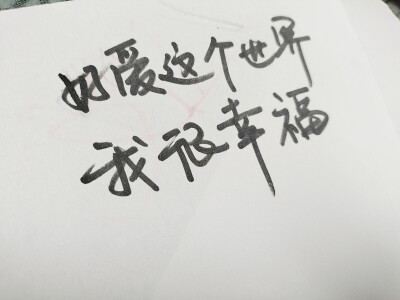 好爱这个世界
我很幸福